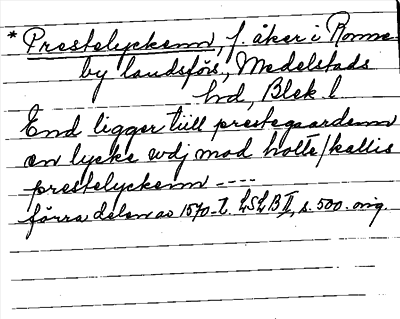 * Prestelyckenn, f. åker i Ronne-
by landsförs., Medelstads
hd, Blek. l.
End ligger tiill prestegaardenn
en lycke wdj mod holtē/kallis
prestelyckenn ----
förra delen av 1570-t. LSLB II, s. 500. orig.